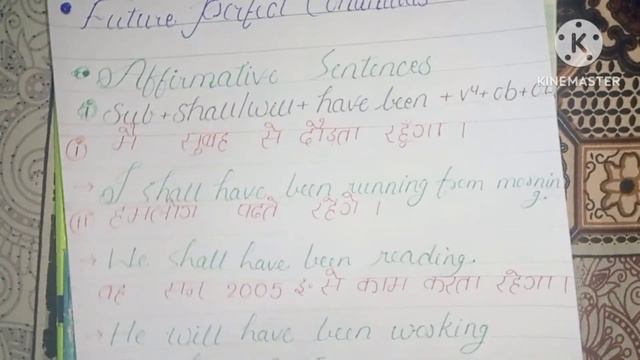 Future perfect Continuous
Affirmative Sentences
Sub + shall/will + have been + v4 + ob +
(i) मै सुबह से दौड़ता रहूँगा ।
→ I shall have been running from morning.
(ii) हमलोग पढ़ते रहेंगे ।
→ We shall have been reading.
वह सन् 2005 ई० से काम करता रहेगा ।
→ He will have been working
KINEMASTER